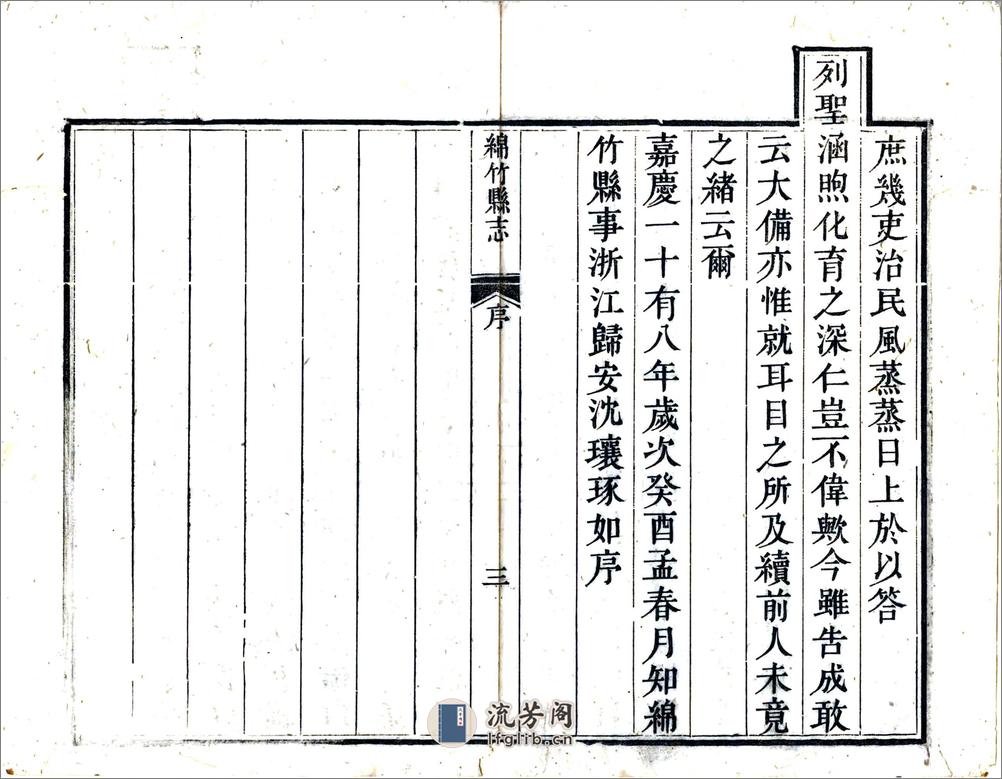 庶幾吏治民風蒸蒸日上於以答
列聖涵煦化育之深仁豈不偉歟今雖告成敢
云大備亦惟就耳目之所及續前人未竟
之緒云爾
嘉慶一十有八年歲次癸酉孟春月知綿
竹縣事浙江歸安沈瓖琢如序
綿竹縣志
序
三
流芳阁
lfglib.cn